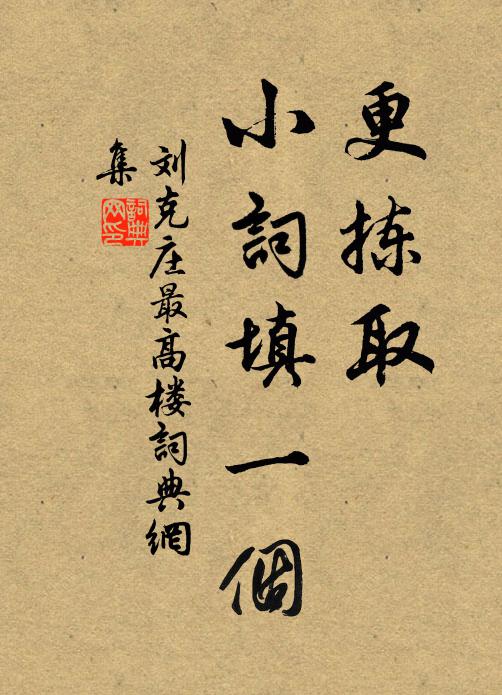 更拣取
小詞填一個
刘克庄最高楼詞典網
集
詞典網印